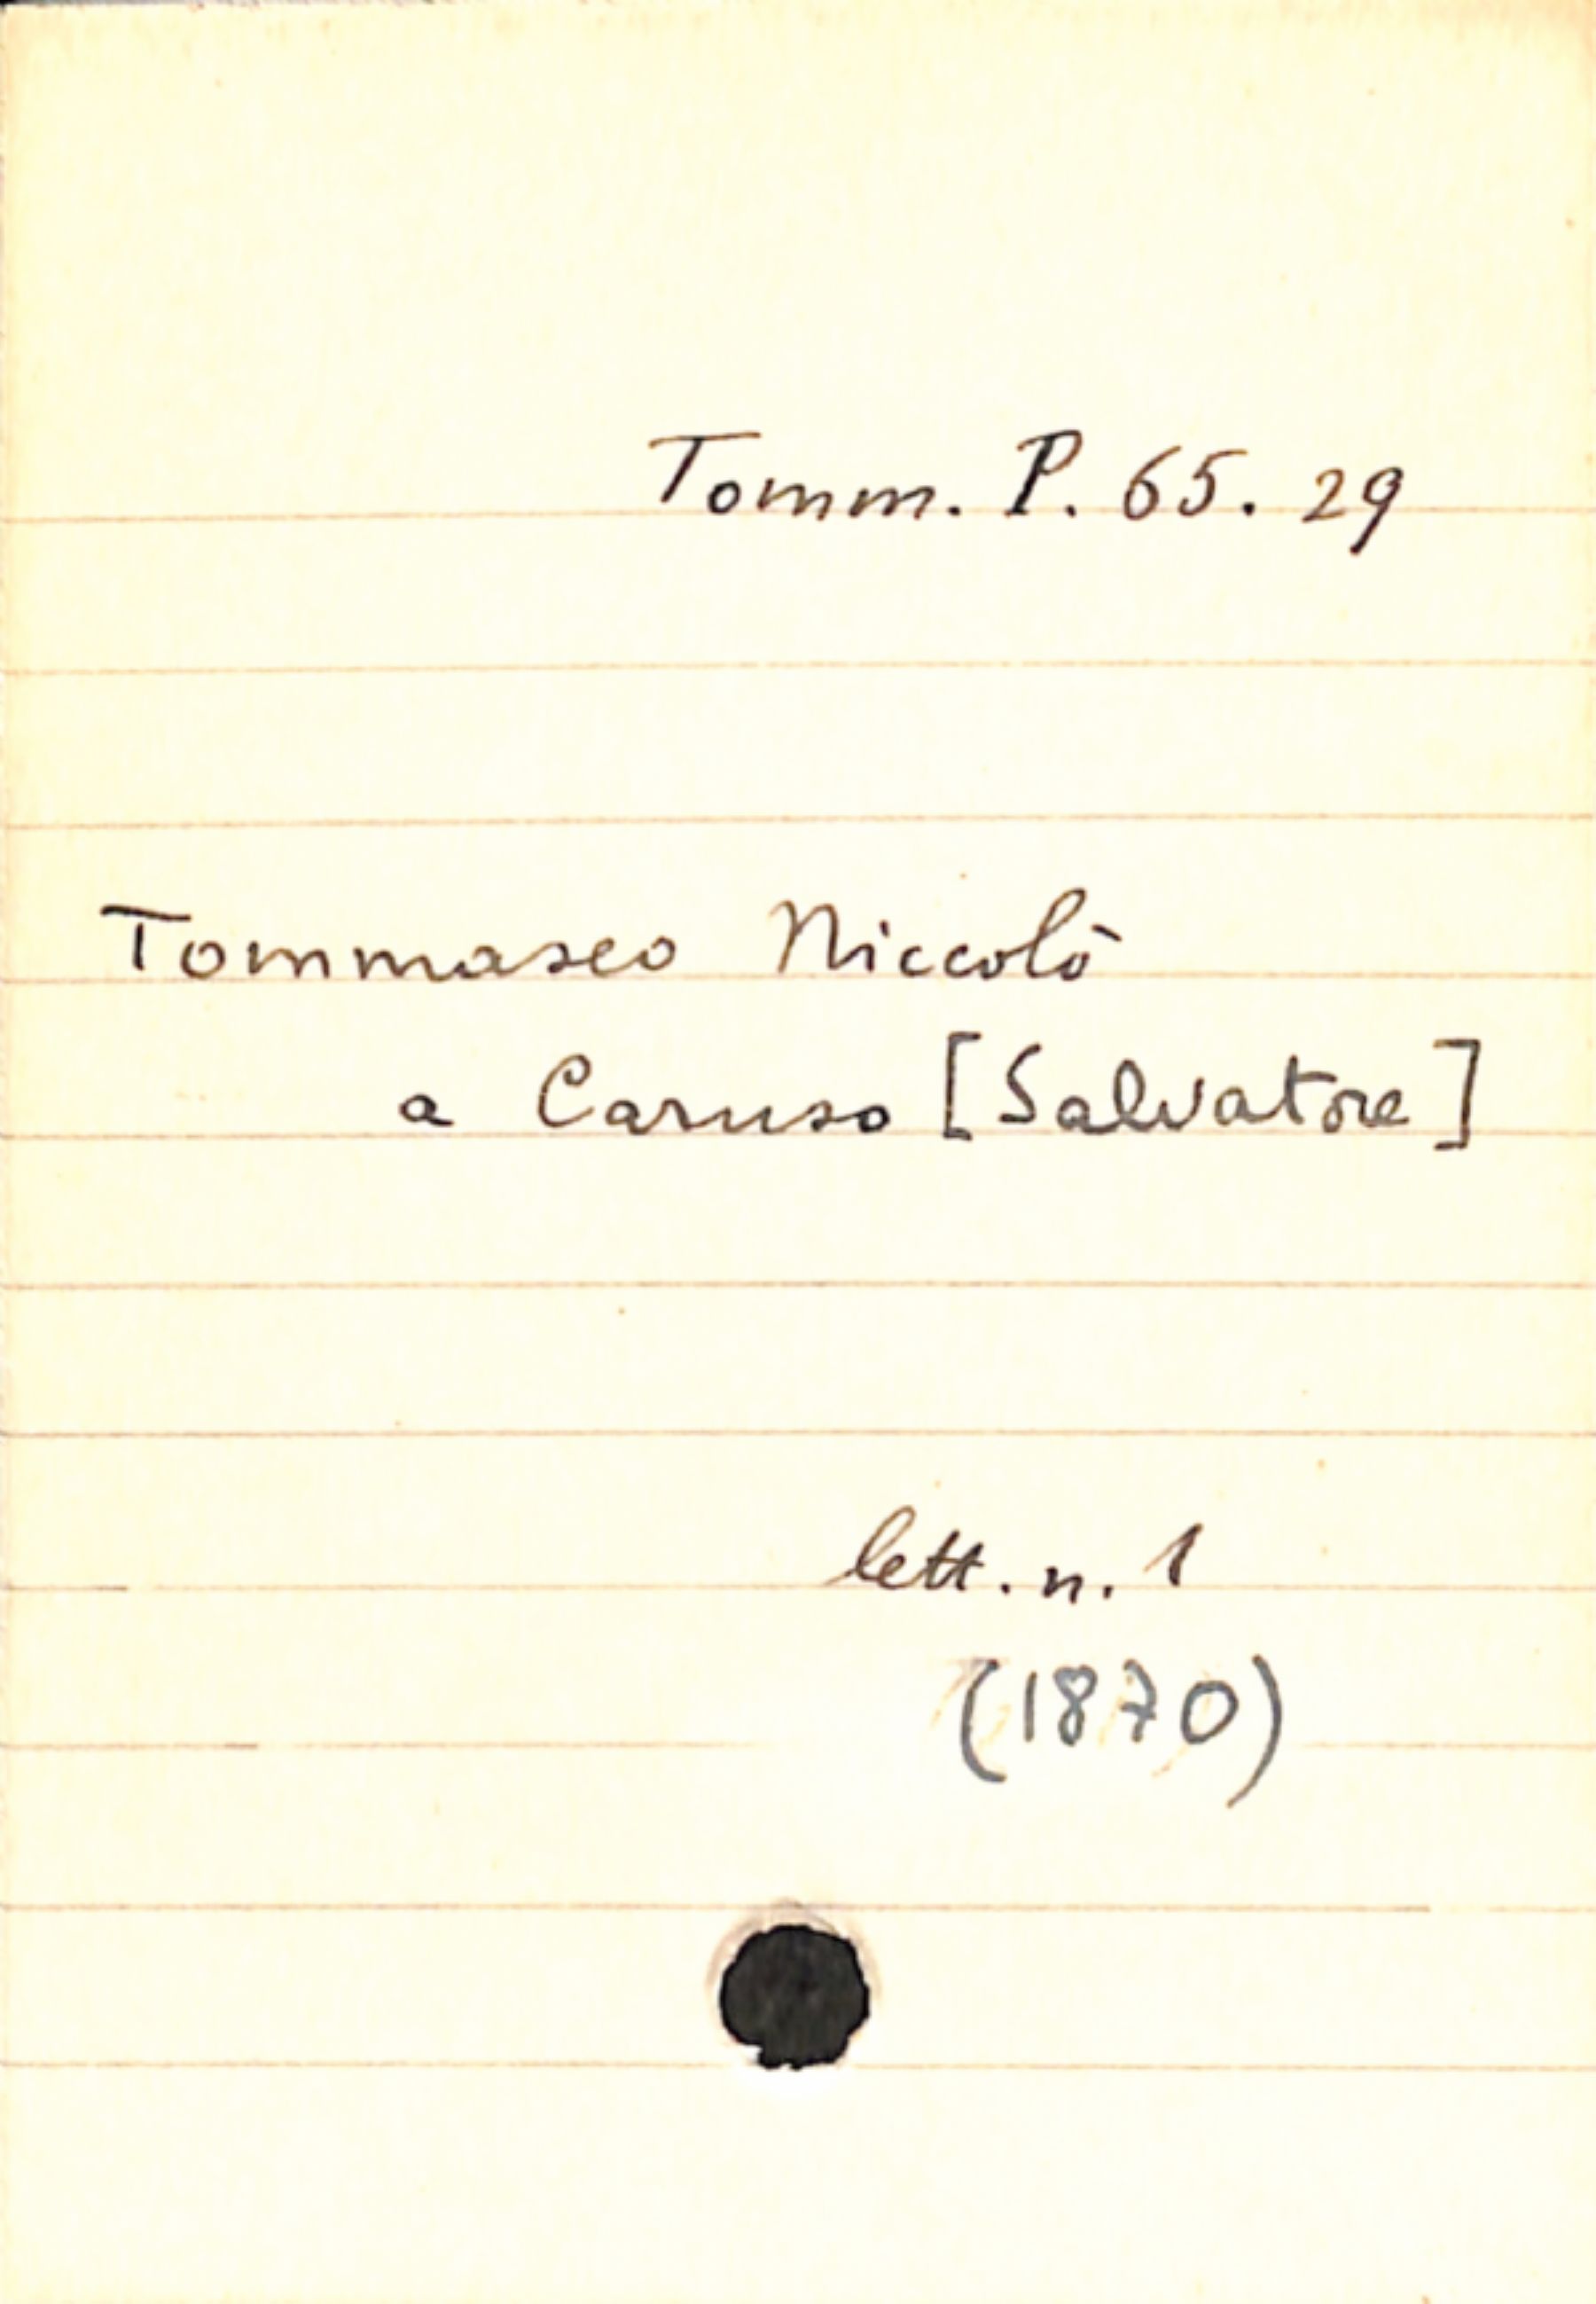 Tomm. P. 65. 29
Tommaseo Niccolò
a Caruso [Salvatore]
lett. n. 1
(1870)